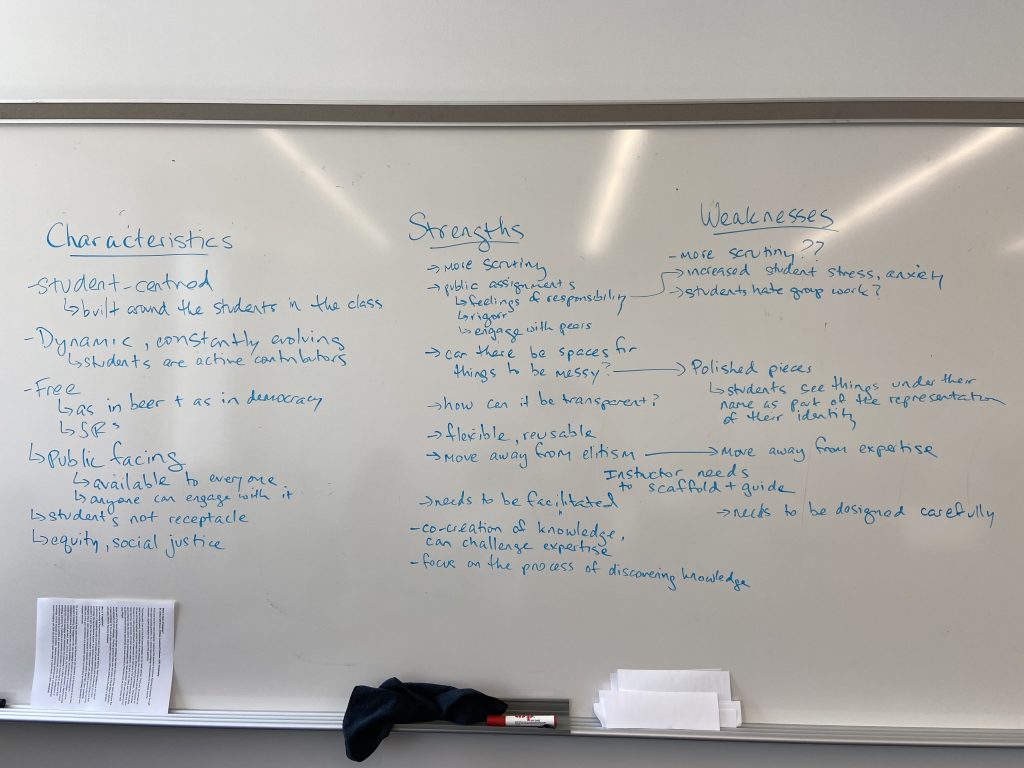 Characteristics
-student-centred
↳built around the students in the class
-Dynamic, constantly evolving
↳students are active contributors
-Free
↳as in beer + as in democracy
↳5R's
↳Public facing
↳available to everyone.
↳anyone can engage with it
↳student's not receptacle
↳equity, social justice
Strengths
→more scrutiny
→public assignments
↳feelings of responsibility
↳rigorr
↳engage with peers
→can there be spaces for
things to be messy?
→how can it be transparent?
→flexible, reusable
→move away from elitism
Instructor needs
to scaffold + guide
→needs to be facilitated
-co-creation of knowledge,
can challenge expertise
-focus on the process of discovering knowledge
Weaknesses
-more scrutiny??
→increased student stress, anxiety
→students hate group work?
→Polished pieces
↳students see things under their
name as part of the representation
of their identity
→move away from expertise
→needs to be designed carefully